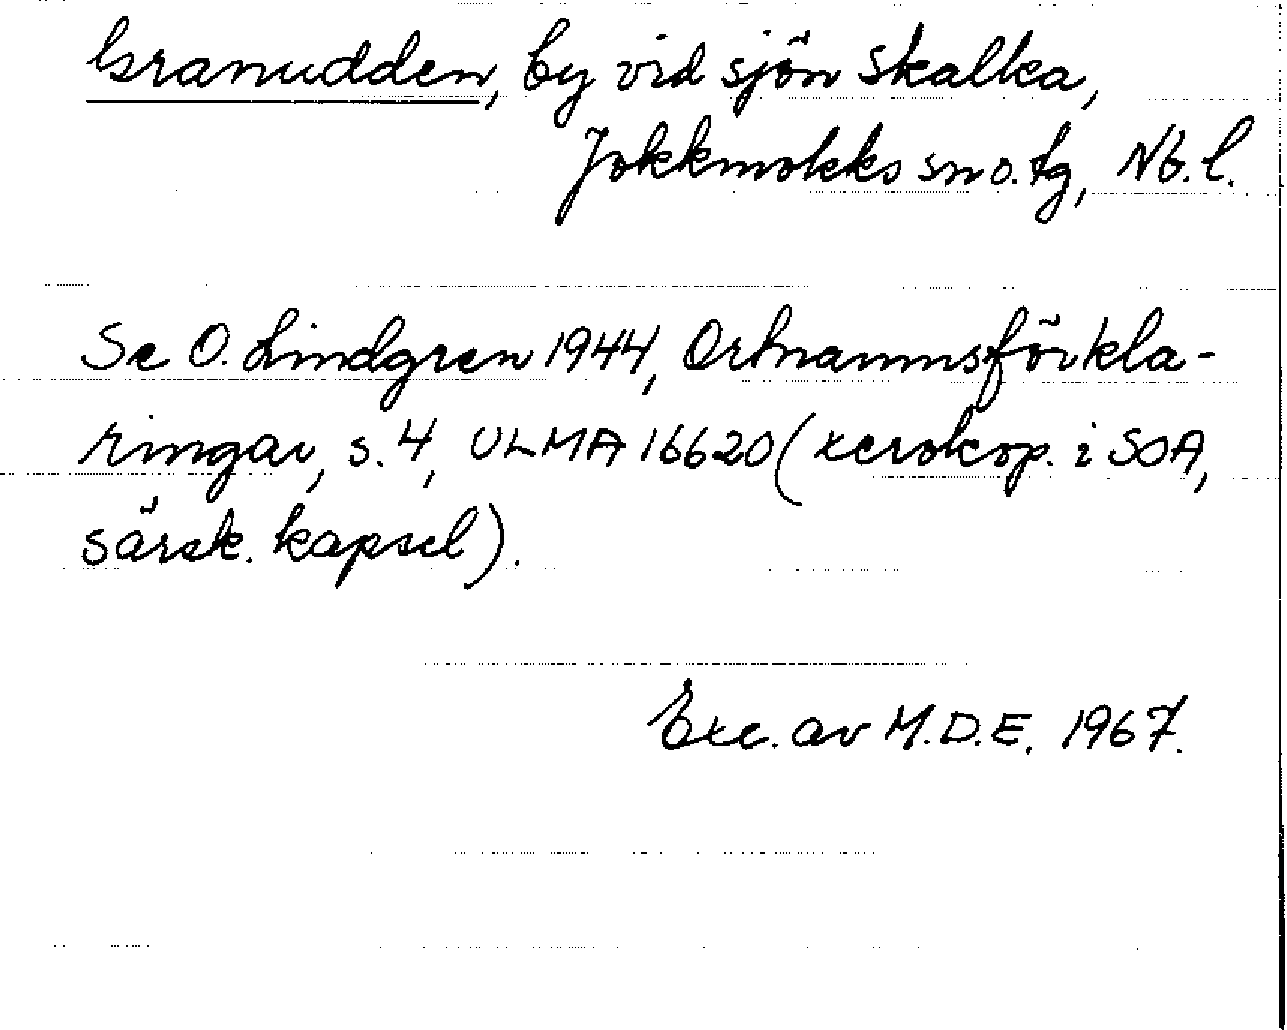 Granudden, by vid sjön Skalka,
Jokkmokks sn o. tg, Nb. l.
Se O. Lindgren 1944, Ortnamnsförkla-
ringar, s. 4, ULMA 16620 (xerokop. i SOA,
särsk. kapsel).
Exc. av M.D.E. 1967.